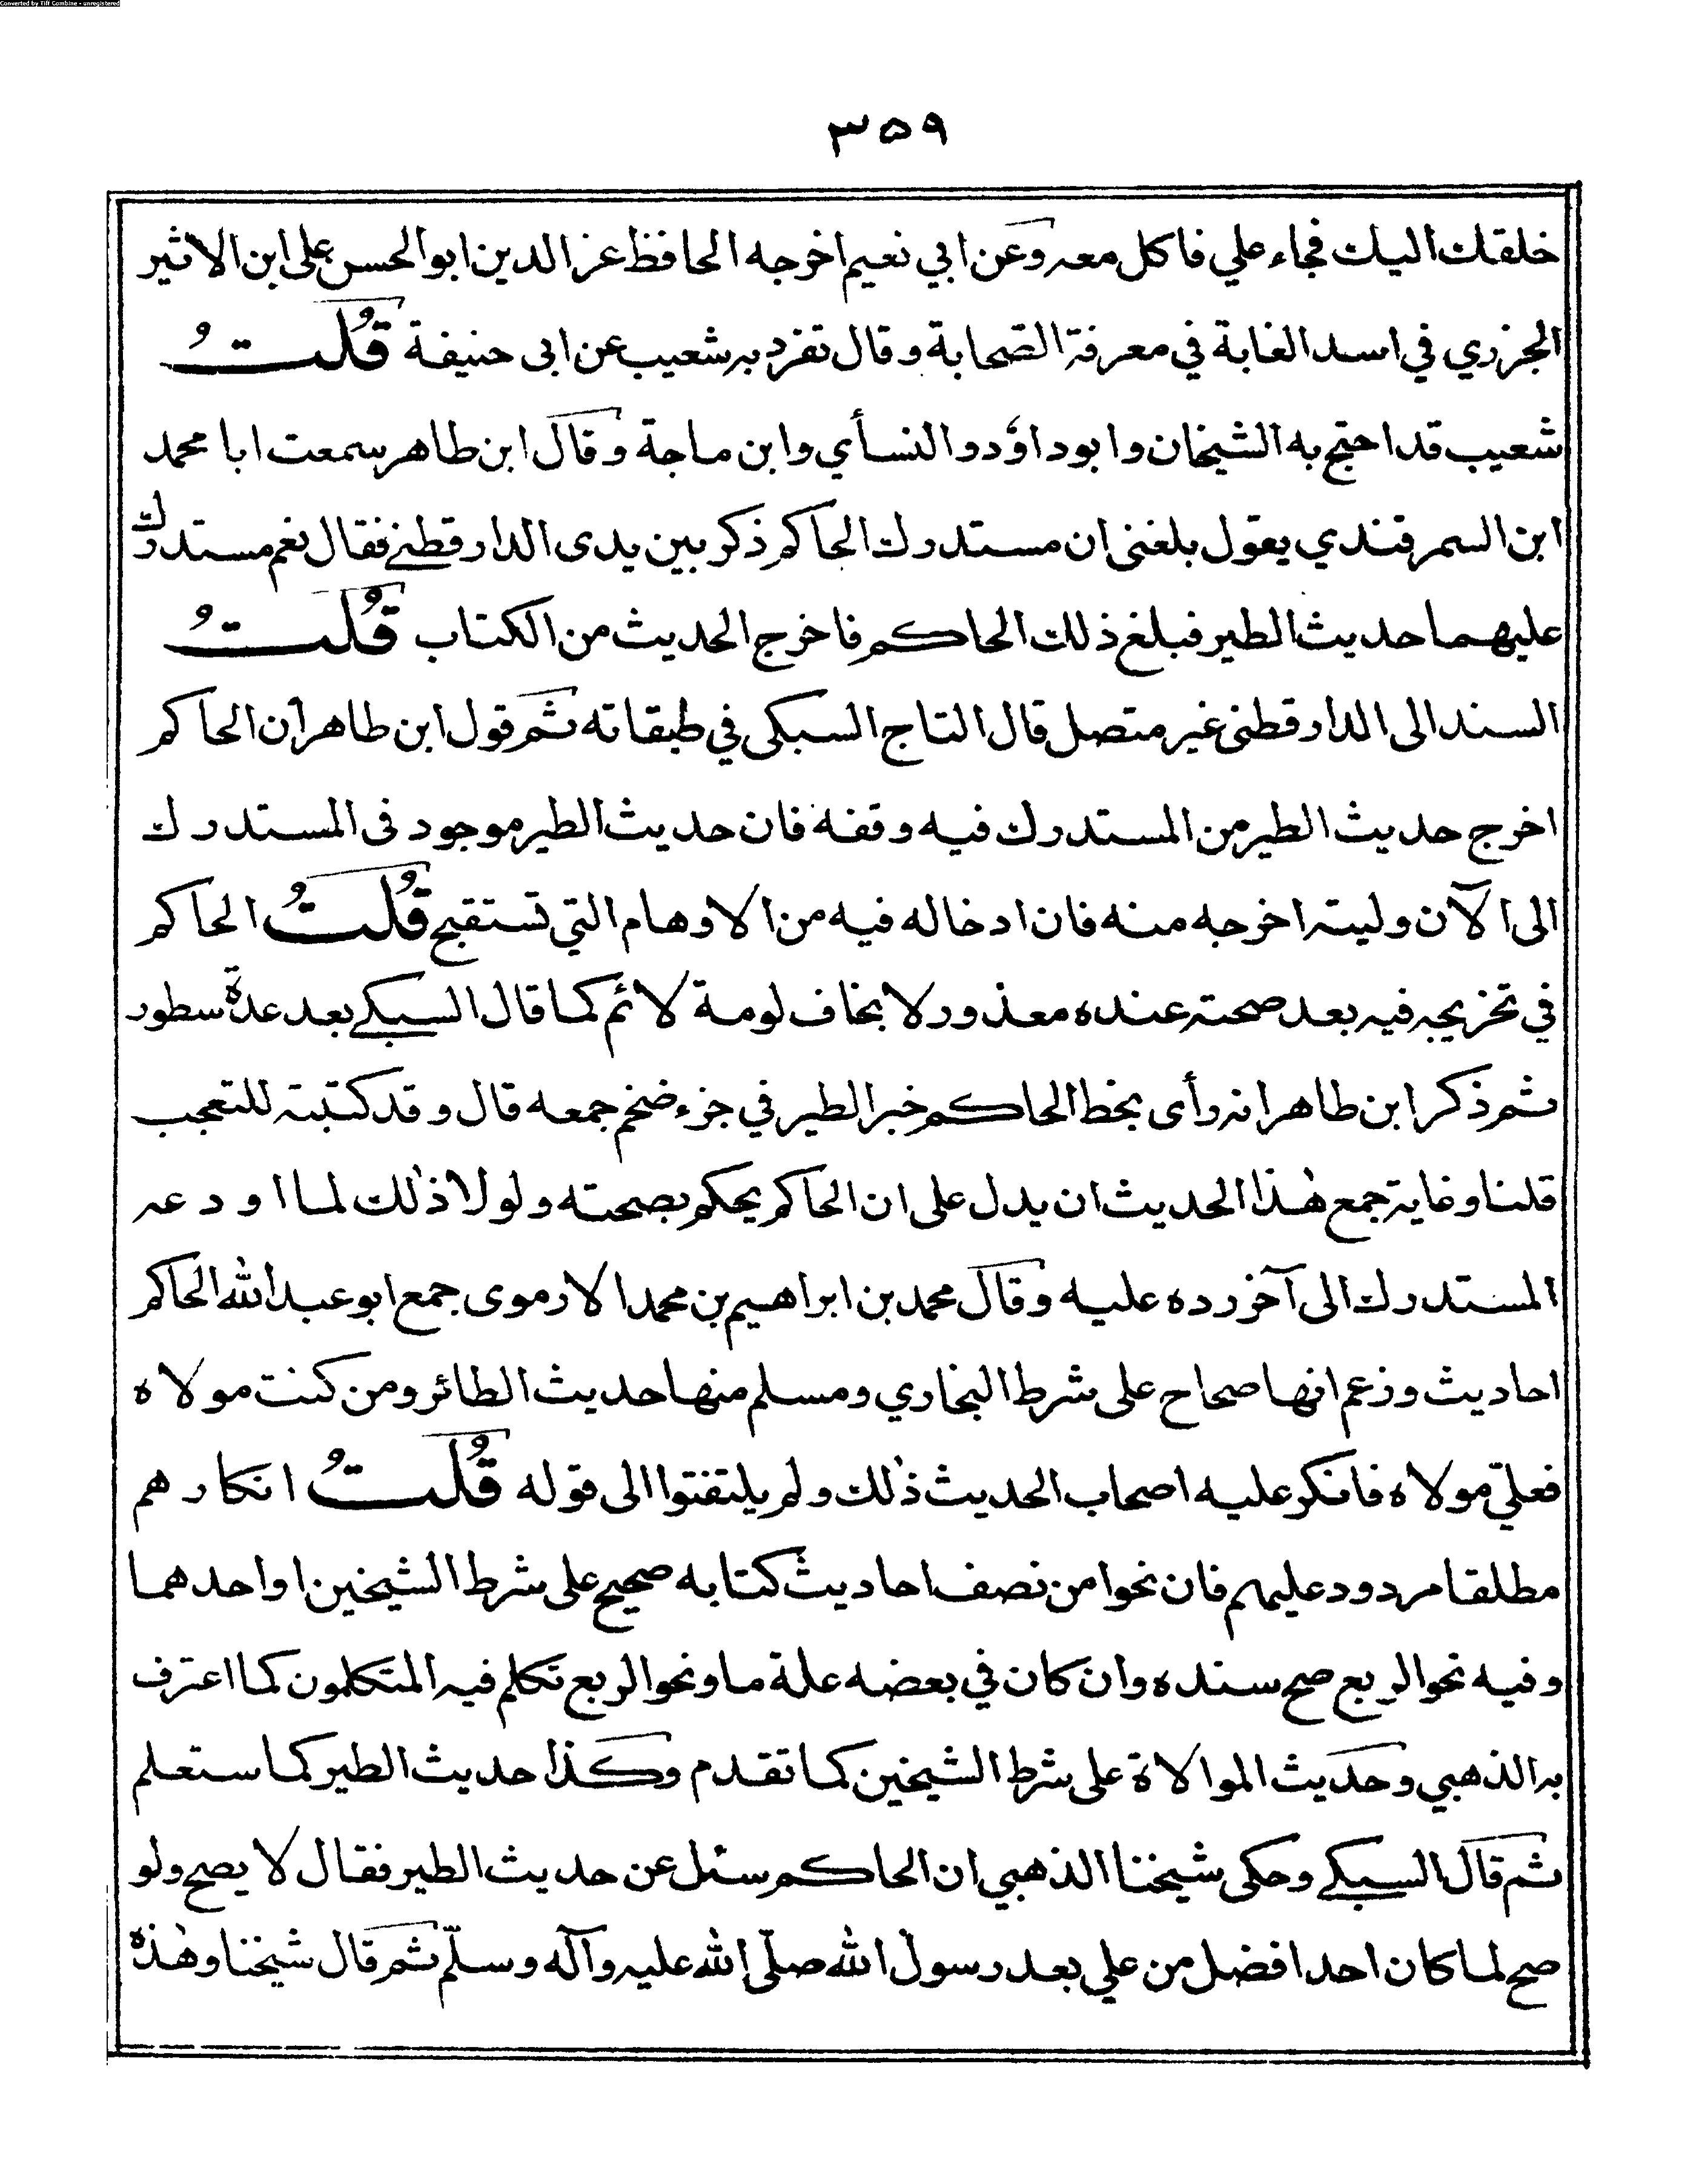 Converted by Tiff Combine - unregistered
٣٥٩
خلقك اليك فجاء علي فاكل معه وعن ابي نعيم اخرجه الحافظ عز الدين ابو الحسن على ابن الاثير
الجزري في اسد الغابة في معرفة الصحابة وقال تفرد به شعيب عن ابى حنيفة قُلتُ
شعيب قد احتج به الشيخان وابو داؤد والنسأي وابن ماجة وقال ابن طاهر سمعت ابا محمد
ابن السمرقندي يقول بلغنى ان مستدرك الحاكم ذكر بين يدى الدارقطني فقال نعم مستدرك
عليهما حديث الطير فبلغ ذلك الحاكم فاخرج الحديث من الكتاب قُلتُ
السند الى الدارقطنى غير متصل قال التاج السبكى في طبقاته ثم قول ابن طاهر ان الحاكم
اخرج حديث الطير من المستدرك فيه وقفة فان حديث الطير موجود فى المستدرك
الى الآن وليته اخرجه منه فان ادخاله فيه من الاوهام التي تستقبح قُلتُ الحاكم
في تخريجه فيه بعد صحته عنده معذور لا يخاف لومة لائم كما قال السبكي بعد عدة سطور
ثم ذكر ابن طاهر انه رأى بخط الحاكم خبر الطير في جزء ضخم جمعه قال وقد كتبته للتعجب
قلنا وغاية جمع هٰذا الحديث ان يدل على ان الحاكم يحكم بصحته ولولا ذٰلك لما اودعه
المستدرك الى آخر رده عليه وقال محمد بن ابراهيم بن محمد الارموى جمع ابو عبد الله الحاكم
احاديث وزعم انها صحاح على شرط البخاري ومسلم منها حديث الطائر ومن كنت مولاه
فعليّ مولاه فانكر عليه اصحاب الحديث ذٰلك ولم يلتفتوا الى قوله قُلتُ انكارهم
مطلقا مردود عليهم فان نحوا من نصف احاديث كتابه صحيح على شرط الشيخين او احدهما
وفيه نحو الربع صح سنده وان كان في بعضه علة ما ونحو الربع تكلم فيه المتكلمون كما اعترف
به الذهبي وحديث الموالاة على شرط الشيخين كما تقدم وكذا حديث الطير كما ستعلم
ثم قال السبكي وحكى شيخنا الذهبي ان الحاكم سئل عن حديث الطير فقال لا يصح ولو
صح لما كان احد افضل من علي بعد رسول الله صلّى الله عليه وآله وسلّم ثم قال شيخنا وهٰذه